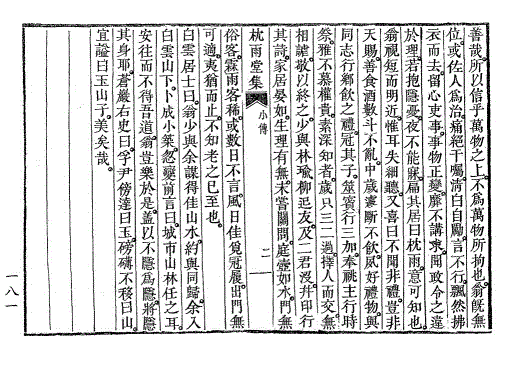 善哉所以信乎萬物之上不為萬物所拘也翁旣無
位或佐人為治痛絕干囑淸白自勵言不行飄然拂
衣而去留心吏事事物正變靡不講求聞政令之違
於理若抱隱憂夜不能寐扁其居曰枕雨意可知也
翁視短而明近惟耳失細聽又喜曰不聞非禮豈非
天賜善食酒數斗不亂中歲輒斷不飲夙好禮物與
同志行鄉飲之禮冠其子筮賓行三加奉祧主行時
祭雅不慕權貴素深知者歲只三二過擇人而交無
相謔敬以終之少與林瑜柳𨓜友及二君沒幷印行
其詩家居晏如生理有無未嘗關問庭壺如水門無
枕雨堂集
小傳
二
俗客霖雨客稀或數日不言風日佳覓冠屨出門無
可適夷猶而止不知老之已至也
白雲居士曰翁少與余謀得佳山水約與同歸余入
白雲山下卜成小築翁變前言曰城市山林任之耳
安往而不得吾道翁豈樂於是盖以不隱為隱將隱
其身耶蒼巖右史曰孚尹傍達曰玉磅礴不移曰山
宜謚曰玉山子美矣哉
一八一